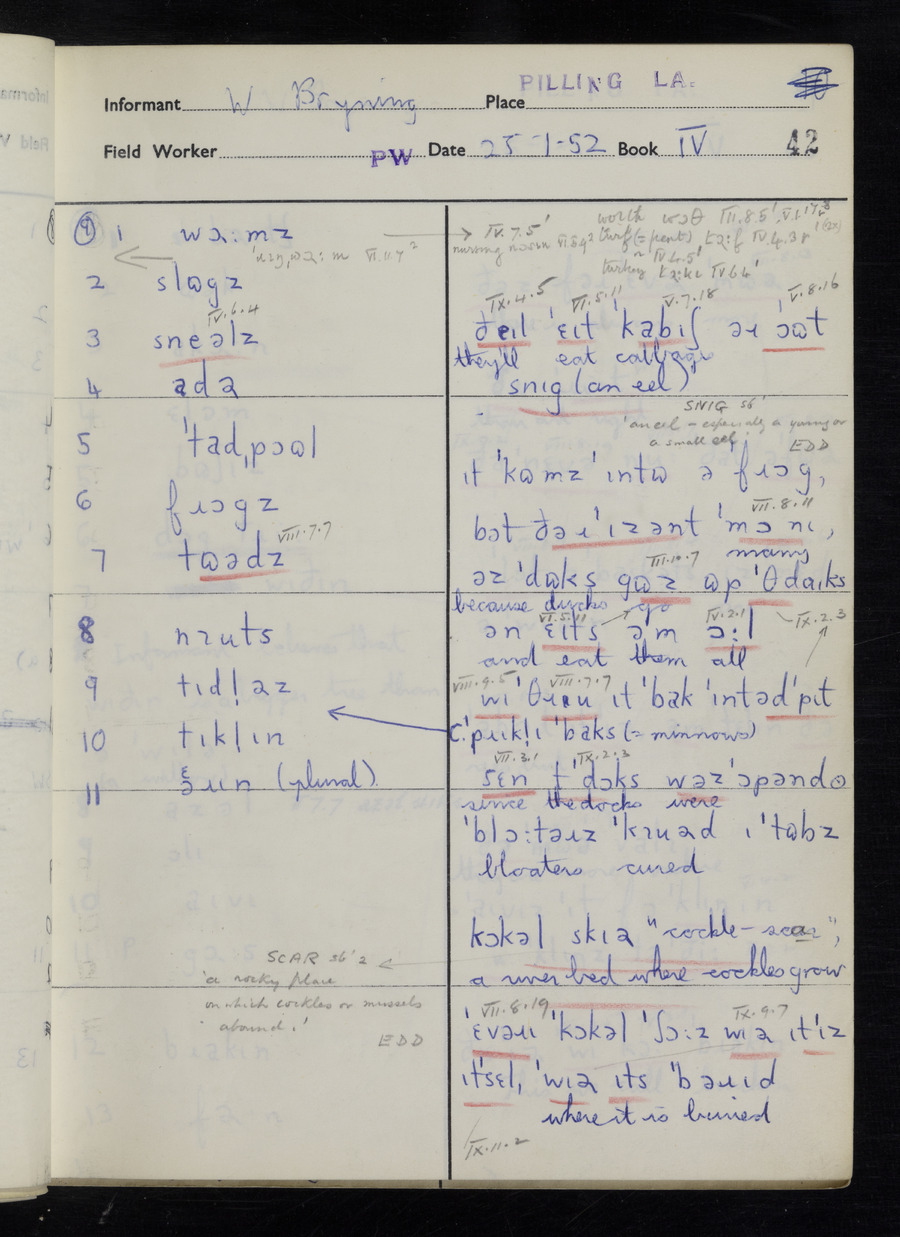 PILLING LA.
Informant W Bryning Place
Field Worker PW Date 25-1-52 Book IV 42
9 1 wɔ:mz
IV.7.5'
nursing
VI.11.4²
2 slɷgz
IV.6.4
3 sneəlz
4 adə
5 'tad,pɔəl
6 fɹɔgz
7 tɷədz VIII.7.7
8 nɪuts
9 tɪdl̩əz
10 tɪklɪn
11 (plural)
SCAR sb' 2
'a rocky place
on which cockles or mussels
abound.'
EDD
worth wɔθ VII.8.5'
turf (= peat) IV.4.3
IV.4.5'
turkey IV.6.4'
IX.4.5 VI.5.11 V.7.18 V.8.16
ðeɪl 'ɛɪt 'kabɪʃ əɪ 'ɔɷt
they'll eat cabbage
snig (an eel)
SNIG sb'
'an eel – especially a young or
a small eel' EDD
ɪt 'kɷmz 'ɪntɷ ə 'fɹɔg,
VII.8.11
bət ðəɪ 'ɪzənt 'mɔnɪ,
many
III.10.7
əz 'dɷks gɷz ɷp 'θdaɪks
because ducks go
VI.5.11 IV.2.1 IX.2.3
ən ɛɪts əm ɔ:l
and eat them all
VIII.9.5 VIII.7.7
wɪ 'θɹɪu ɪt 'bak 'ɪntəd'pɪt
c.'pɹɪkl̩ɪ 'baks (= minnows)
VII.3.1 IX.2.3
sɛn t'dɔks wəz 'ɔpənd
since the docks were
'blɔ:təɹz 'kɪuəd ɪ 'tɷbz
bloaters cured
kɔkəl skɪə "cockle-scar",
a river bed where cockles grow
VII.8.19 IX.9.7
'ɛvəɹɪ 'kɔkəl 'ʃɔ:z wɪə ɪt'ɪz
ɪt'sɛl, 'wɪə ɪts 'bəɹɪd
where it is buried
IX.11.2